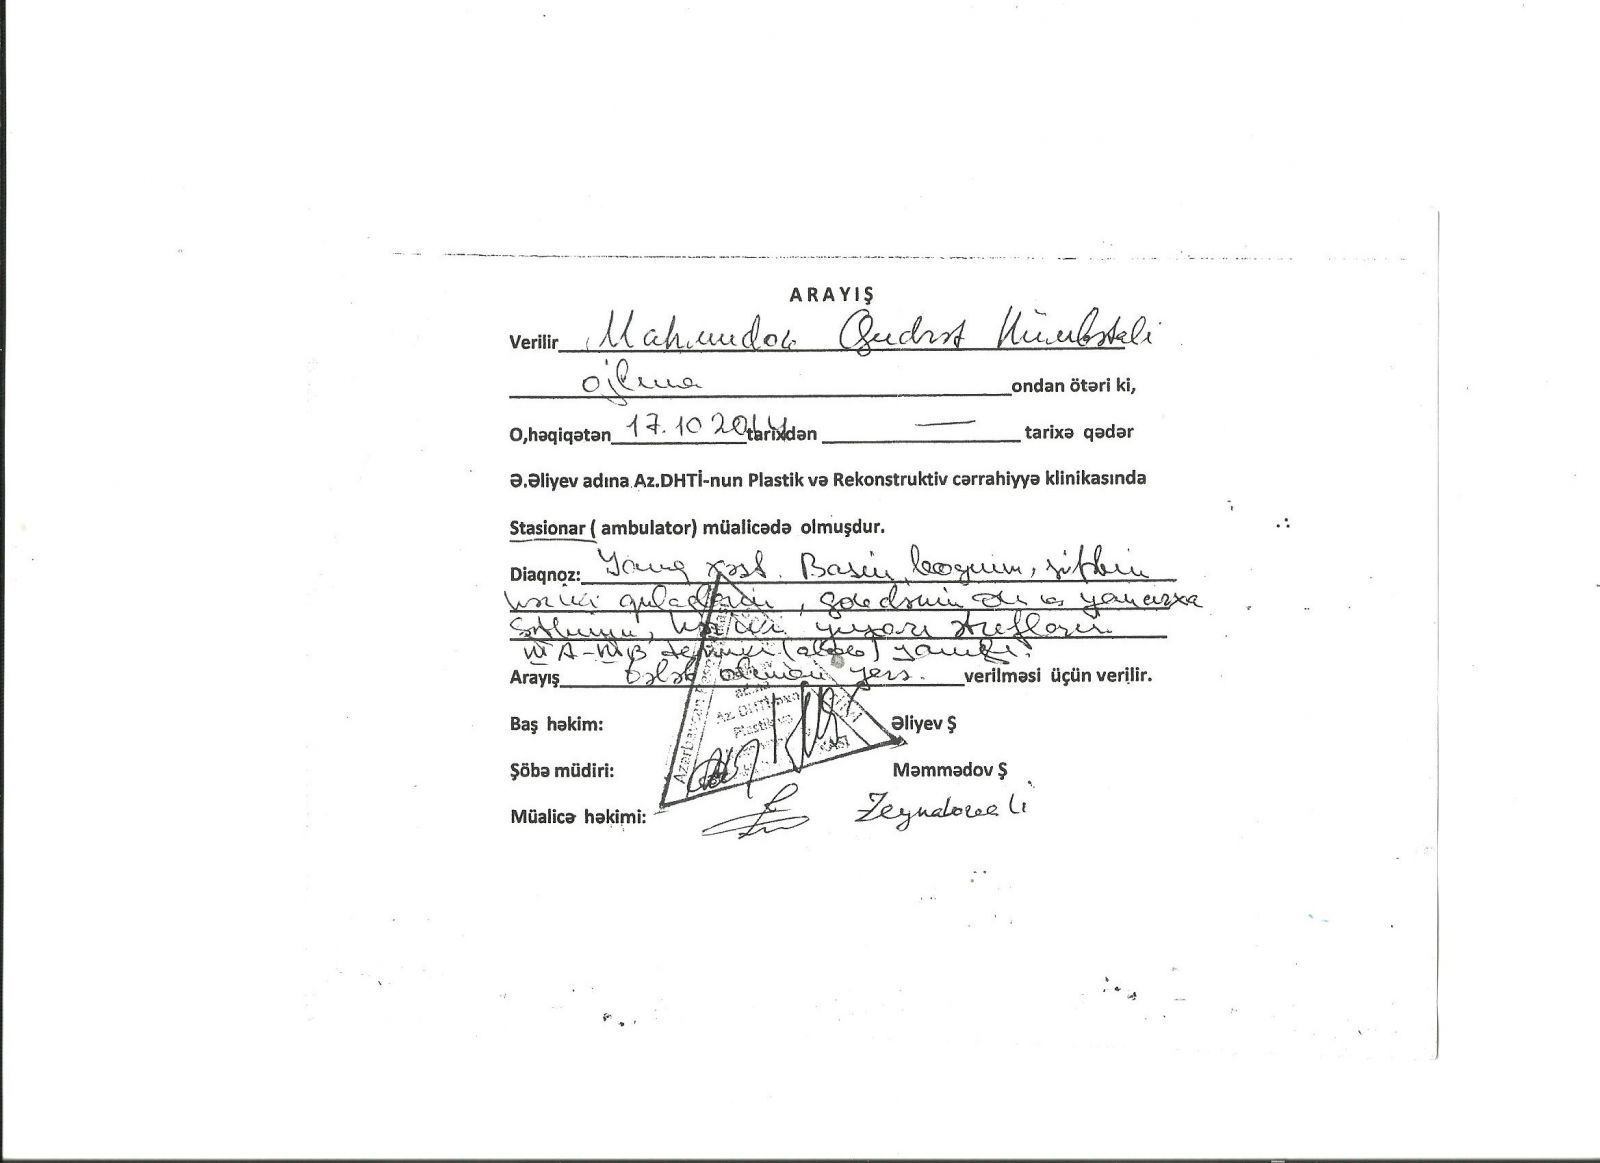 ARAYIŞ
Verilir Mahmudov Qudrət
oğluna ondan ötəri ki,
O,həqiqətən 17.10 2014 tarixdən — tarixə qədər
Ə.Əliyev adına Az.DHTİ-nun Plastik və Rekonstruktiv cərrahiyyə klinikasında
Stasionar ( ambulator) müalicədə olmuşdur.
Diaqnoz: Yanıq xəst. Başın, boyunun, sifətin
hər iki , gövdənin ön və yanarxa
səthinin, hər iki yuxarı ətrafların
III A-III B termiki (alov) yanığı.
Arayış tələb olunan yerə verilməsi üçün verilir.
Az. DHTİ-nun
Plastik və
Baş həkim: Əliyev Ş
Şöbə müdiri: Məmmədov Ş
Müalicə həkimi: